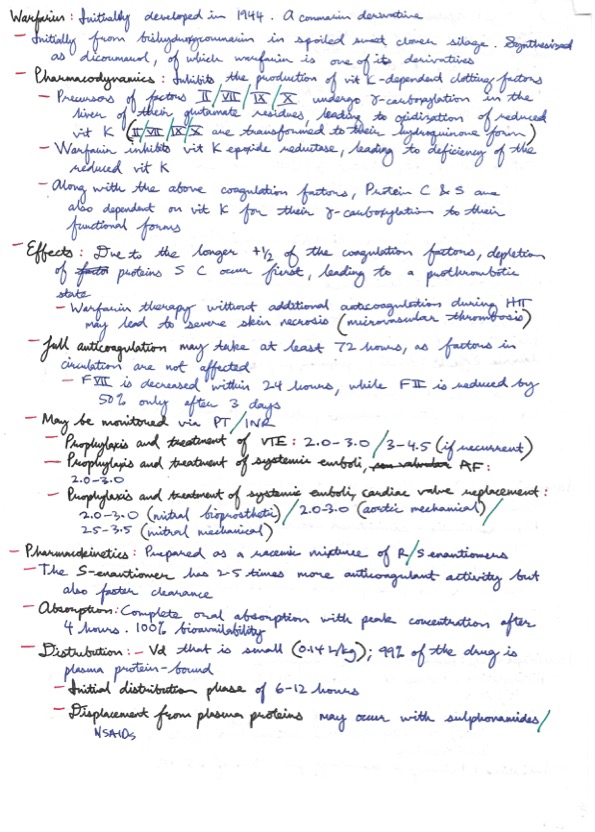 Warfarin: Initially developed in 1944. A coumarin derivative
- Initially from bishydroxycoumarin in spoiled sweet clover silage. Synthesized
as dicoumarol, of which warfarin is one of its derivatives
- Pharmacodynamics: Inhibits the production of vit K-dependent clotting factors
- Precursors of factors II/VII/IX/X undergo γ-carboxylation in the
liver of their glutamate residues, leading to oxidization of reduced
vit K (II/VII/IX/X are transformed to their hydroquinone form)
- Warfarin inhibits vit K epoxide reductase, leading to deficiency of the
reduced vit K
- Along with the above coagulation factors, Protein C & S are
also dependent on vit K for their γ-carboxylation to their
functional forms
- Effects: Due to the longer t1/2 of the coagulation factors, depletion
of facto proteins S C occur first, leading to a prothrombotic
state
- Warfarin therapy without additional anticoagulation during HIT
may lead to severe skin necrosis (microvascular thrombosis)
- Full anticoagulation may take at least 72 hours, as factors in
circulation are not affected
- FVII is decreased within 24 hours, while FII is reduced by
50% only after 3 days
- May be monitored via PT/INR
- Prophylaxis and treatment of VTE: 2.0-3.0/3-4.5 (if recurrent)
- Prophylaxis and treatment of systemic emboli, AF:
2.0-3.0
- Prophylaxis and treatment of systemic emboli, cardiac valve replacement:
2.0-3.0 (mitral bioprosthetic)/2.0-3.0 (aortic mechanical)/
2.5-3.5 (mitral mechanical)
- Pharmacokinetics: Prepared as a racemic mixture of R/S enantiomers
- The S-enantiomer has 2-5 times more anticoagulant activity but
also faster clearance
- Absorption: Complete oral absorption with peak concentration after
4 hours. 100% bioavailability
- Distribution: - Vd that is small (0.14 L/kg); 99% of the drug is
plasma protein-bound
- Initial distribution phase of 6-12 hours
- Displacement from plasma proteins may occur with sulphonamides/
NSAIDs